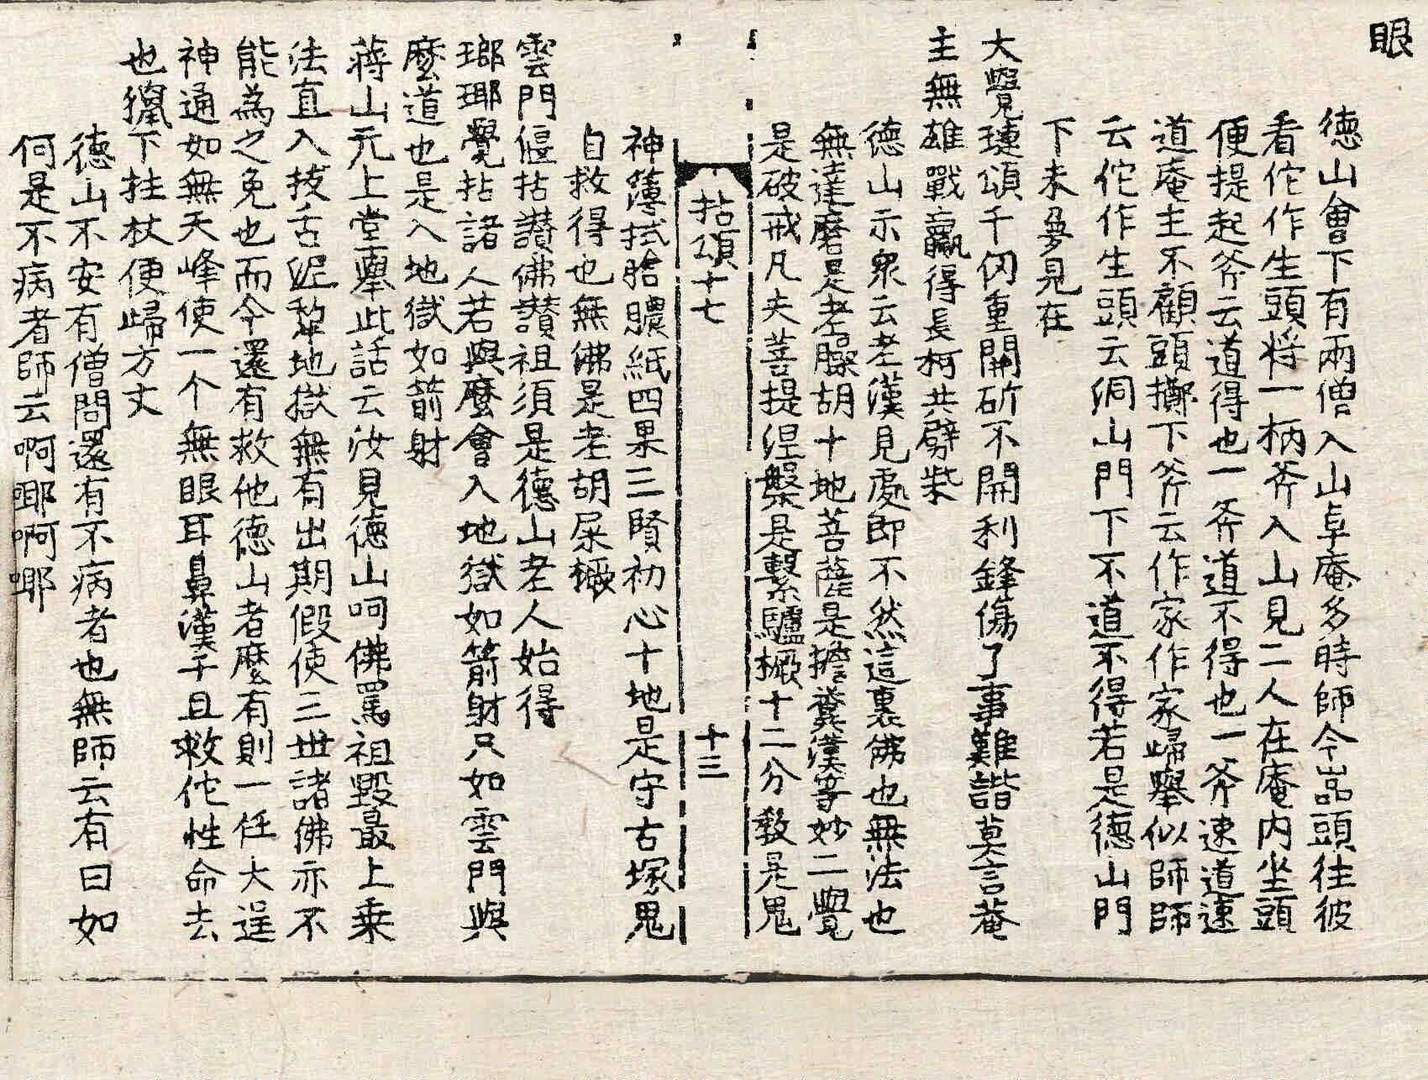 眼
德山會下有兩僧入山卓庵多時師令嵓頭往彼
看佗作生頭將一柄斧入山見二人在庵內坐頭
便提起斧云道得也一斧道不得也一斧速道速
道庵主不顧頭擲下斧云作家作家歸舉似師師
云佗作生頭云洞山門下不道不得若是德山門
下未夢見在
大覺璉頌千仞重關斫不開利鋒傷了事難諧莫言菴
主無雄戰贏得長柯共劈柴
德山示衆云老漢見處卽不然這裏佛也無法也
無達磨是老臊胡十地菩薩是擔糞漢等妙二覺
是破戒凡夫菩提涅槃是繫驢橛十二分敎是鬼
拈頌十七
十三
神簿拭瘡膿紙四果三賢初心十地是守古塚鬼
自救得也無佛是老胡屎橛
雲門偃拈讚佛讚祖須是德山老人始得
瑯琊覺拈諸人若與麽會入地獄如箭射只如雲門與
麽道也是入地獄如箭射
蔣山元上堂舉此話云汝見德山呵佛罵祖毀最上乘
法直入拔舌泥犂地獄無有出期假使三世諸佛亦不
能為之免也而今還有救他德山者麽有則一任大逞
神通如無天峰使一个無眼耳鼻漢子且救佗性命去
也擲下拄杖便歸方丈
德山不安有僧問還有不病者也無師云有曰如
何是不病者師云啊㖿啊㖿